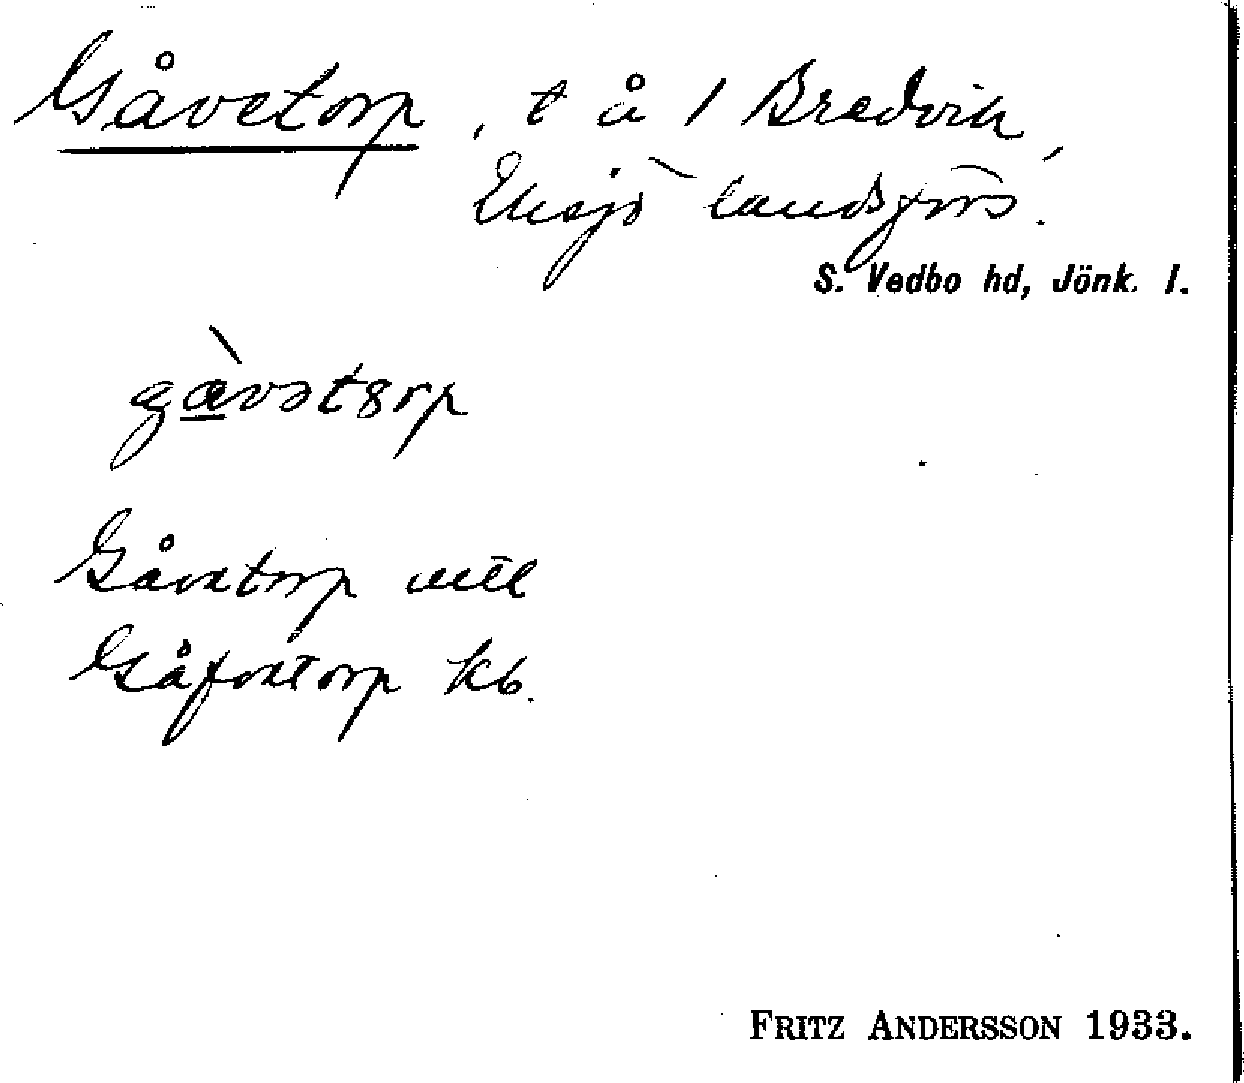 Gåvetorp, t å 1 Bredvik,
Eksjö landsförs.
S. Vedbo hd, Jönk. l.
gàvətorp
Gåvetorp
Gåfvetorp kb.
FRITZ ANDERSSON 1933.